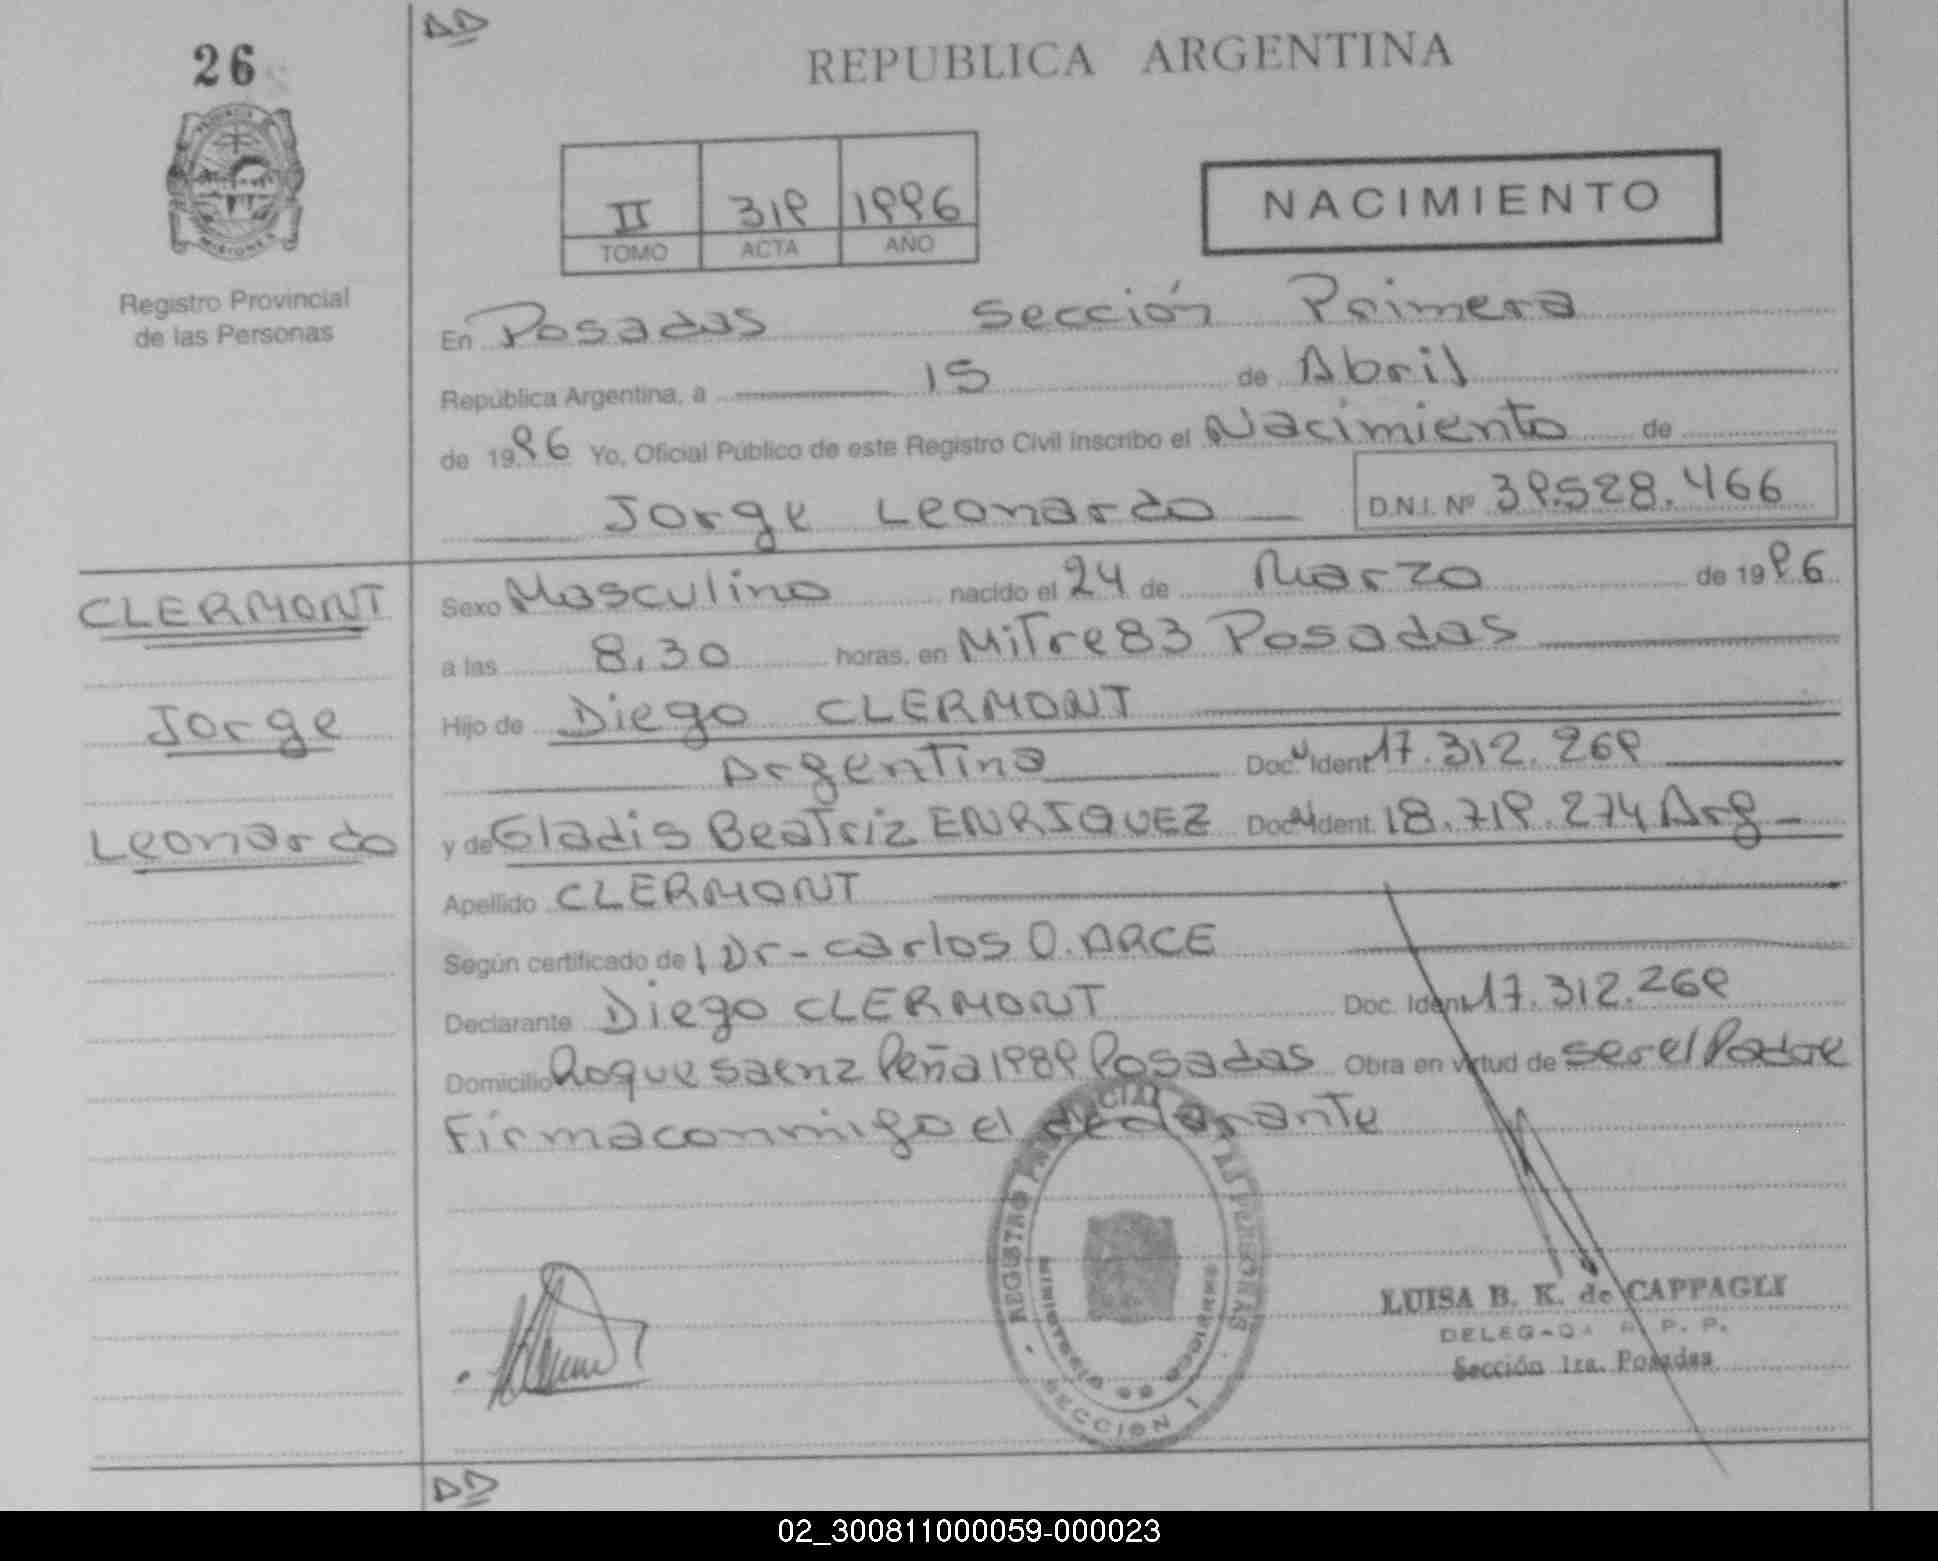 26
DD
REPUBLICA ARGENTINA
PROVINCIA
MISIONES
Registro Provincial
de las Personas
II 319 1996
TOMO ACTA AÑO
NACIMIENTO
En Posadas Sección Primera
República Argentina, a 15 de Abril
de 1996 Yo, Oficial Público de este Registro Civil inscribo el Nacimiento de
Jorge Leonardo D.N.I. Nº 39.528.466
CLERMONT
Jorge
Leonardo
Sexo Masculino nacido el 24 de Marzo de 1996
a las 8,30 horas, en Mitre 83 Posadas
Hijo de Diego CLERMONT
Argentino Doc. Ident. 17.312.269
y de Gladis Beatriz ENRIQUEZ Doc. Ident. 18.719.274 Arg
Apellido CLERMONT
Según certificado del Dr- Carlos O. ARCE
Declarante Diego CLERMONT Doc. Ident. 17.312.269
Domicilio Roque Saenz Peña 1989 Posadas Obra en virtud de ser el Padre
Firma conmigo el declarante
REGISTRO PROVINCIAL DE LAS PERSONAS
MINISTERIO DE GOBIERNO
SECCION 1
LUISA B. K. de CAPPAGLI
DELEGADA R. P. P.
Sección 1ra. Posadas
DD
02_300811000059-000023